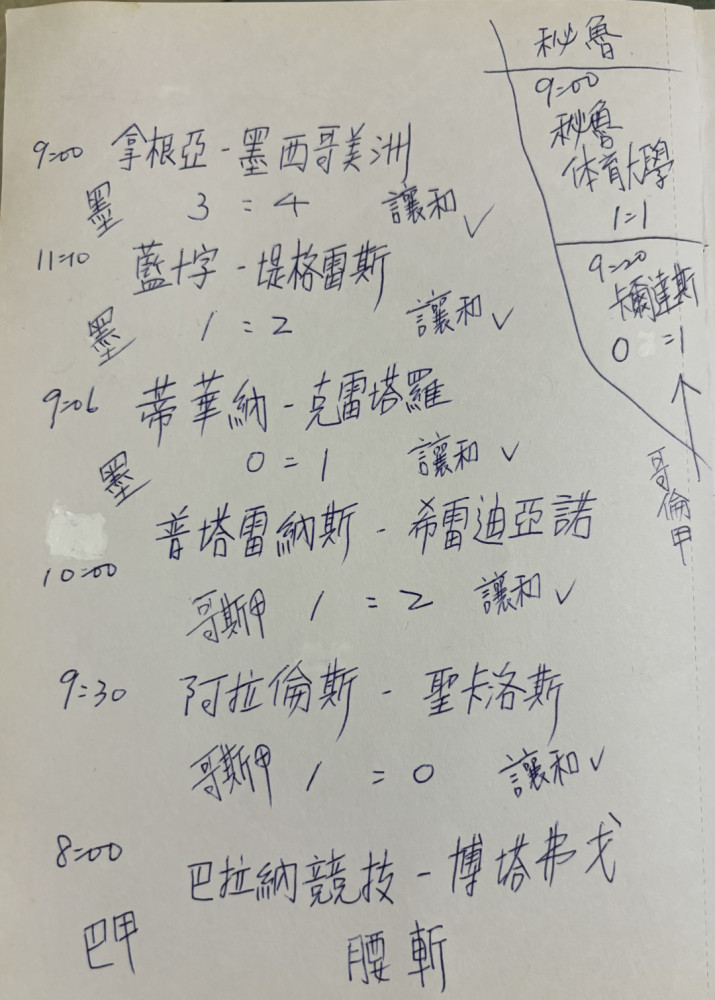 9:00 拿根亞-墨西哥美洲
墨 3:4 讓和✓
11:10 藍十字-堤格雷斯
墨 1:2 讓和✓
9:06 蒂華納-克雷塔羅
墨 0=1 讓和✓
普塔雷納斯-希雷迪亞諾
10:00 哥斯甲 1=2 讓和✓
9:30 阿拉倫斯-聖卡洛斯
哥斯甲 1=0 讓和✓
8:00 巴拉納競技-博塔弗戈
巴甲 腰斬
秘魯
9:00
秘魯
体育大學
1=1
9:20
卡爾達斯
0=1
哥倫甲